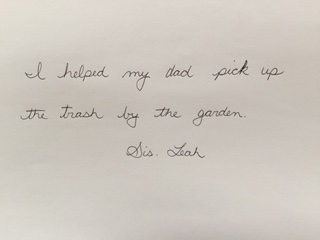 I helped my dad pick up
the trash by the garden.
Sis. Leah